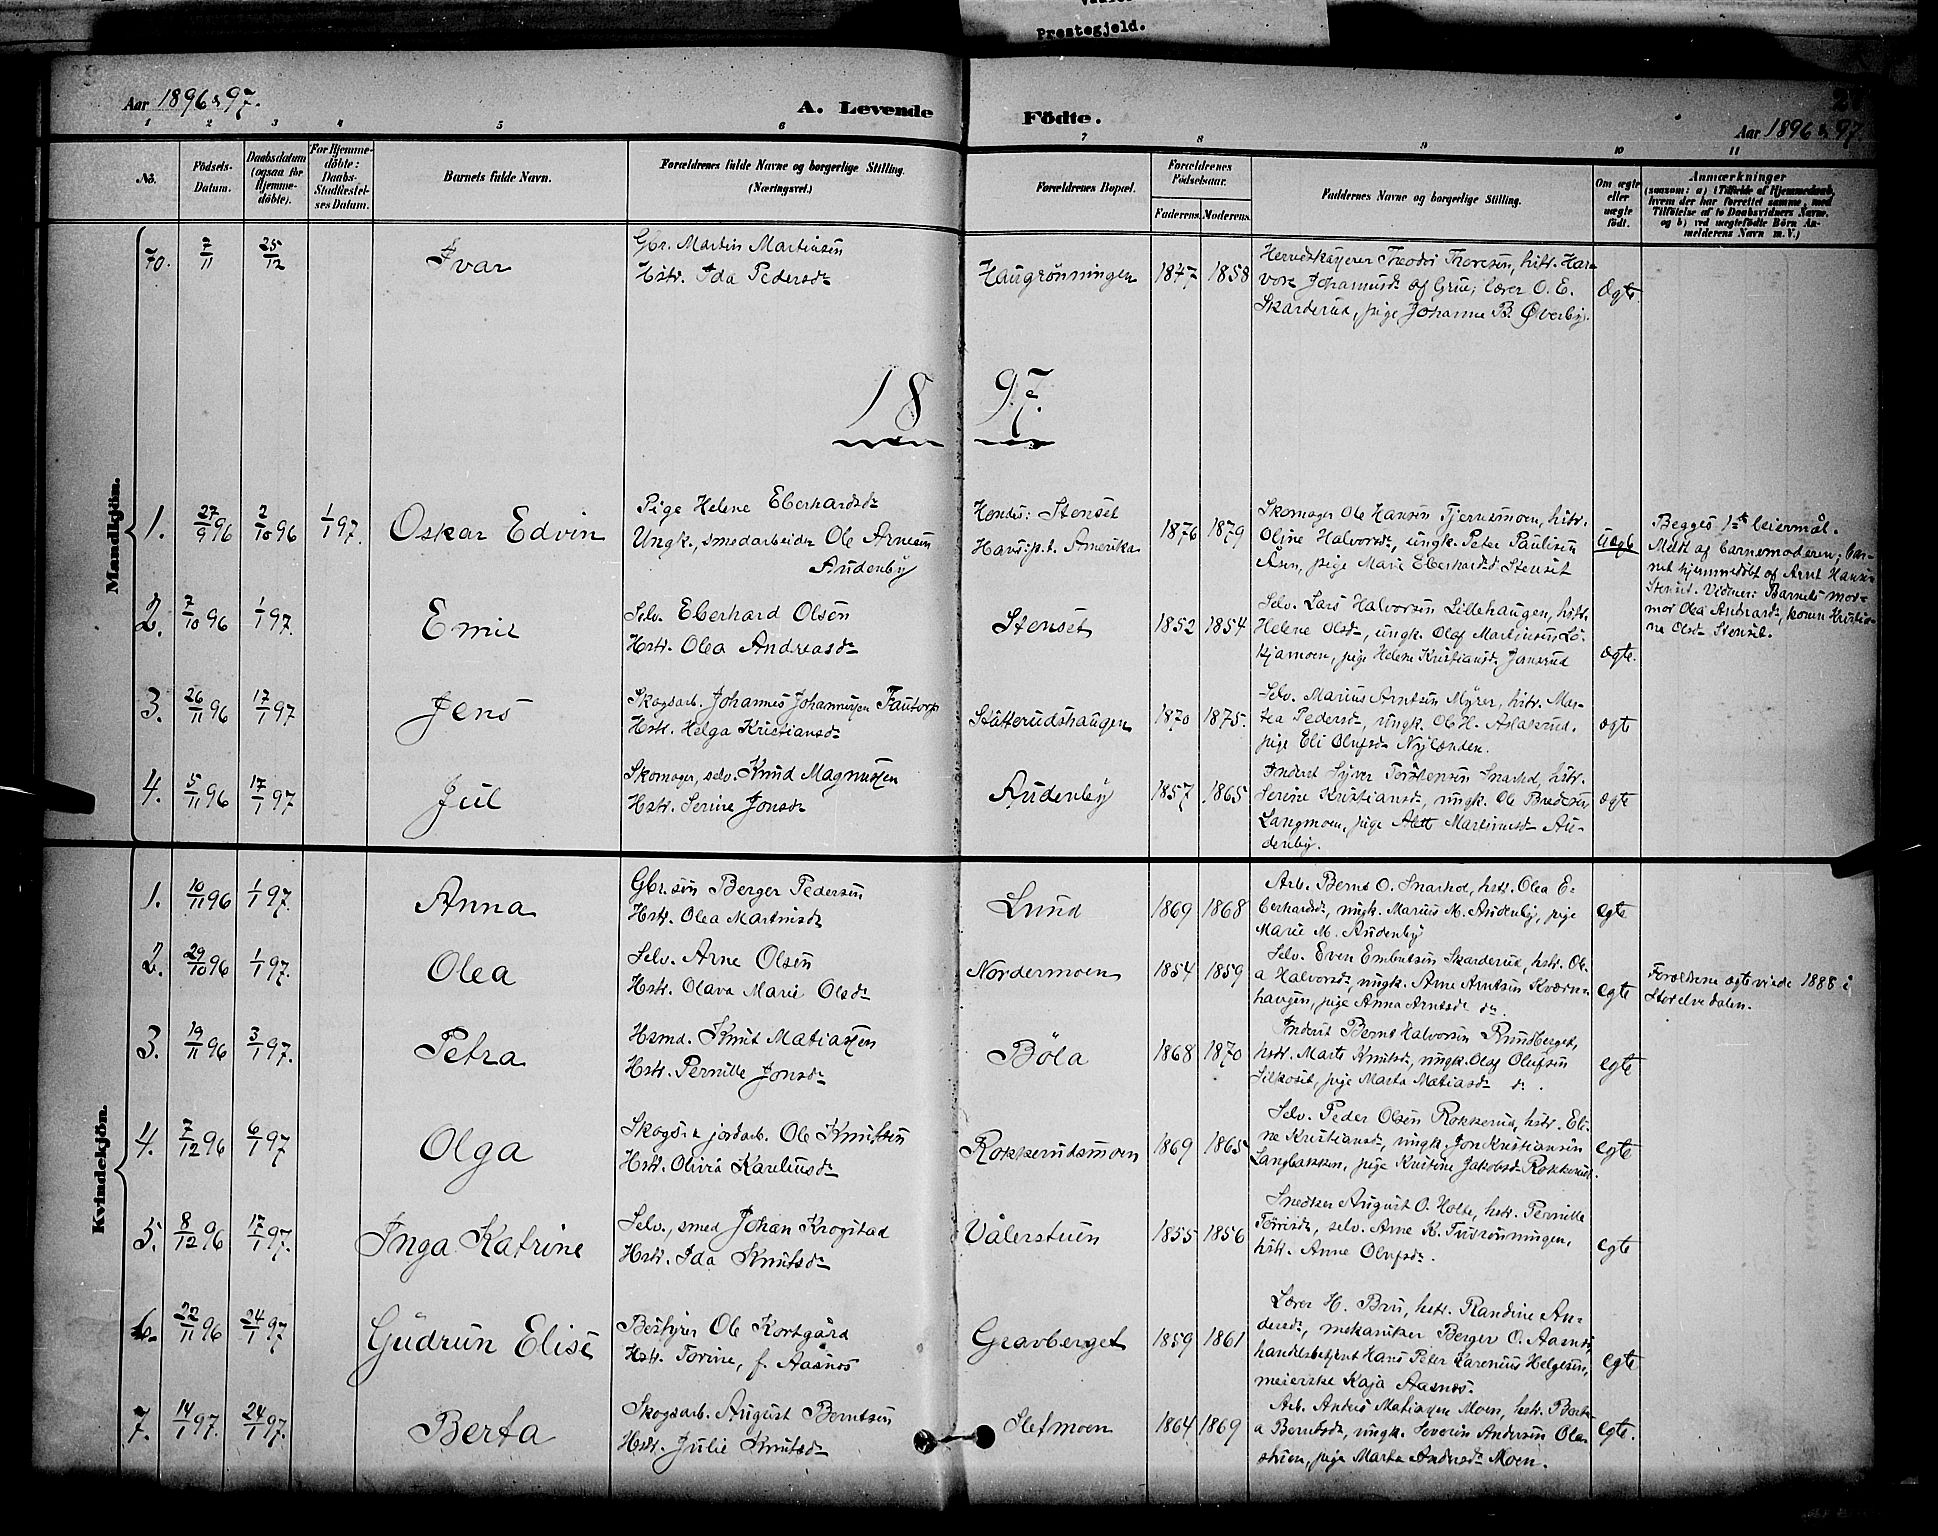 Prestegjeld.
Aar 1896 & 97.
A. Levende Födte.
Aar 1896 & 97.
1 2 3 4 5 6 7 8 9 10 11
No.
Födsels-
Datum.
Daabsdatum
(ogsaa for
Hjemme-
döbte).
For Hjemme-
döbte:
Daabs-
Stadfæstel-
ses Datum.
Barnets fulde Navn.
Forældrenes fulde Navne og borgerlige Stilling.
(Næringsvei.)
Forældrenes Bopæl.
Forældrenes
Födselsaar.
Faderens. Moderens.
Faddernes Navne og borgerlige Stilling.
Om ægte
eller
uægte
födt.
Anmærkninger
(saasom: a) i Tilfælde af Hjemmedaab,
hvem der har forrettet samme, med
Tilföielse af to Daabsvidners Navne,
og b) ved uægtefödte Börn An-
melderens Navn m. V.)
Mandkjön.
70. 7/11 25/12 Ivar
Gbr. Martin Martinsen
Hstr. Ida Pedersdr
Haugrønningen 1847 1858
Herredskasserer Theodor Thoresen, hstr. Hal-
vora Johannesdr af Grue; lærer O. E.
Skarderud, pige Johanne B. Øverby.
Ægte.
1897.
1. 27/9 96 2/10 96 1/1 97. Oskar Edvin
Pige Helene Eberhardsdr
Ungk., smedarbeider Ole Arnesen
Audenby
Hendes: Stenset
Hans: p.t. Amerika
1876 1879
Skomager Ole Hansen Tjernsmoen, hstr.
Oline Halvorsdr, ungk. Peter Paulsen
Åsen, pige Marie Eberhardsd Stenset
Uægte
Begges 1ste leiermål.
Meldt af barnemoderen; bar-
net hjemmedøbt af Arnt Hansen
Stenset. Vidner: Barnets mor-
mor Olea Andreasdr, konen Kristia-
ne Olsdr Stenset.
2. 7/10 96 1/1 97. Emil
Selv. Eberhard Olsen
Hstr. Olea Andreasdr
Stenset 1852 1854
Selv. Lars Halvorsen Lillehaugen, hstr.
Helene Olsdr, ungk. Olaf Martinsen Lö-
kjamoen, pige Helene Kristiansdr Jensrud
ægte.
3. 26/11 96 17/1 97 Jens
Skogsarb. Johannes Johannessen Fautorp
Hstr. Helga Kristiansdr
Stätterudshaugen 1870 1875.
Selv. Marius Arntsen Myrer, hstr. Mar-
tea Pedersdr, ungk. Ole H. Aslaksrud,
pige Eli Olufsdr Nylænden.
ægte
4. 5/11 96 17/1 97 Jul
Skomager, selv. Knud Magnussen
Hstr. Serine Jonsdr
Audenby 1857 1865
Inderst Syver Torstensen Snarhol, hstr.
Serine Kristiansdr, ungk. Ole Bredesen
Langmoen, pige Alett Martinusdr Au-
denby.
ægte
Kvindekjön.
1. 10/11 96 1/1 97. Anna
Gbr.sön Berger Pedersen
Hstr. Olea Martinsdr
Lund 1869 1868
Arb. Bernt O. Snarhol, hstr. Olea E-
berhardsdr, ungk. Marius M. Audenby, pige
Marie M. Audenby
egte
2. 29/10 96 1/1 97. Olea
Selv. Arne Olsen
Hstr. Olava Marie Olsdr
Nordermoen 1854 1859
Selv. Even Embretsen Skarderud, hstr. Ole-
a Halvorsdr, ungk. Arne Arntsen Kværn-
haugen, pige Anna Arntsdr do.
egte
Forældrene ægteviede 1888 i
Storelvedalen.
3. 19/11 96 3/1 97. Petra
Hsmd. Knut Matiassen
Hstr. Pernille Jonsdr
Böla 1868 1870
Inderst Bernt Halvorsen Rundberget,
hstr. Marte Knutsdr, ungk. Olaf Olufsen
Silkoset, pige Marta Matiasdr do.
egte
4. 7/12 96 6/1 97 Olga
Skogs- & jordarb. Ole Knutsen
Hstr. Olivia Karliusdr
Rokkerudsmoen 1869 1865
Selv. Peder Olsen Rokkerud, hstr. Eli-
ne Kristiansdr, ungk. Jon Kristiansen
Langbakken, pige Kristine Jakobsdr Rokkerud.
egte
5. 8/12 96 17/1 97. Inga Katrine
Selv., smed Johan Krogstad
Hstr. Ida Knutsdr
Vålerstuen 1855 1856
Snedker August O. Holte, hstr. Pernille
Torrisdr, selv. Arne K. Furrönningen,
hstr. Anne Olufsdr.
egte
6. 22/11 96 24/1 97 Gudrun Elise
Bestyrer Ole Kortgård
Hstr. Torine, f. Aasnes
Gravberget 1859 1861
Lærer H. Bru, hstr. Randine An-
dersdr, mekaniker Berger O. Aasnes,
handelsbetjent Hans Peter Karenius Helgesen,
meierske Kaja Aasnes.
egte
7. 14/1 97. 24/1 97. Berta
Skogsarb. August Berntsen
Hstr. Julie Knutsdr
Sletmoen 1864 1869
Arb. Anders Matiassen Moen, hstr. Berte-
a Berntsdr, ungk. Severin Andersen Ola-
stuen, pige Marta Andersdr Moen.
egte.